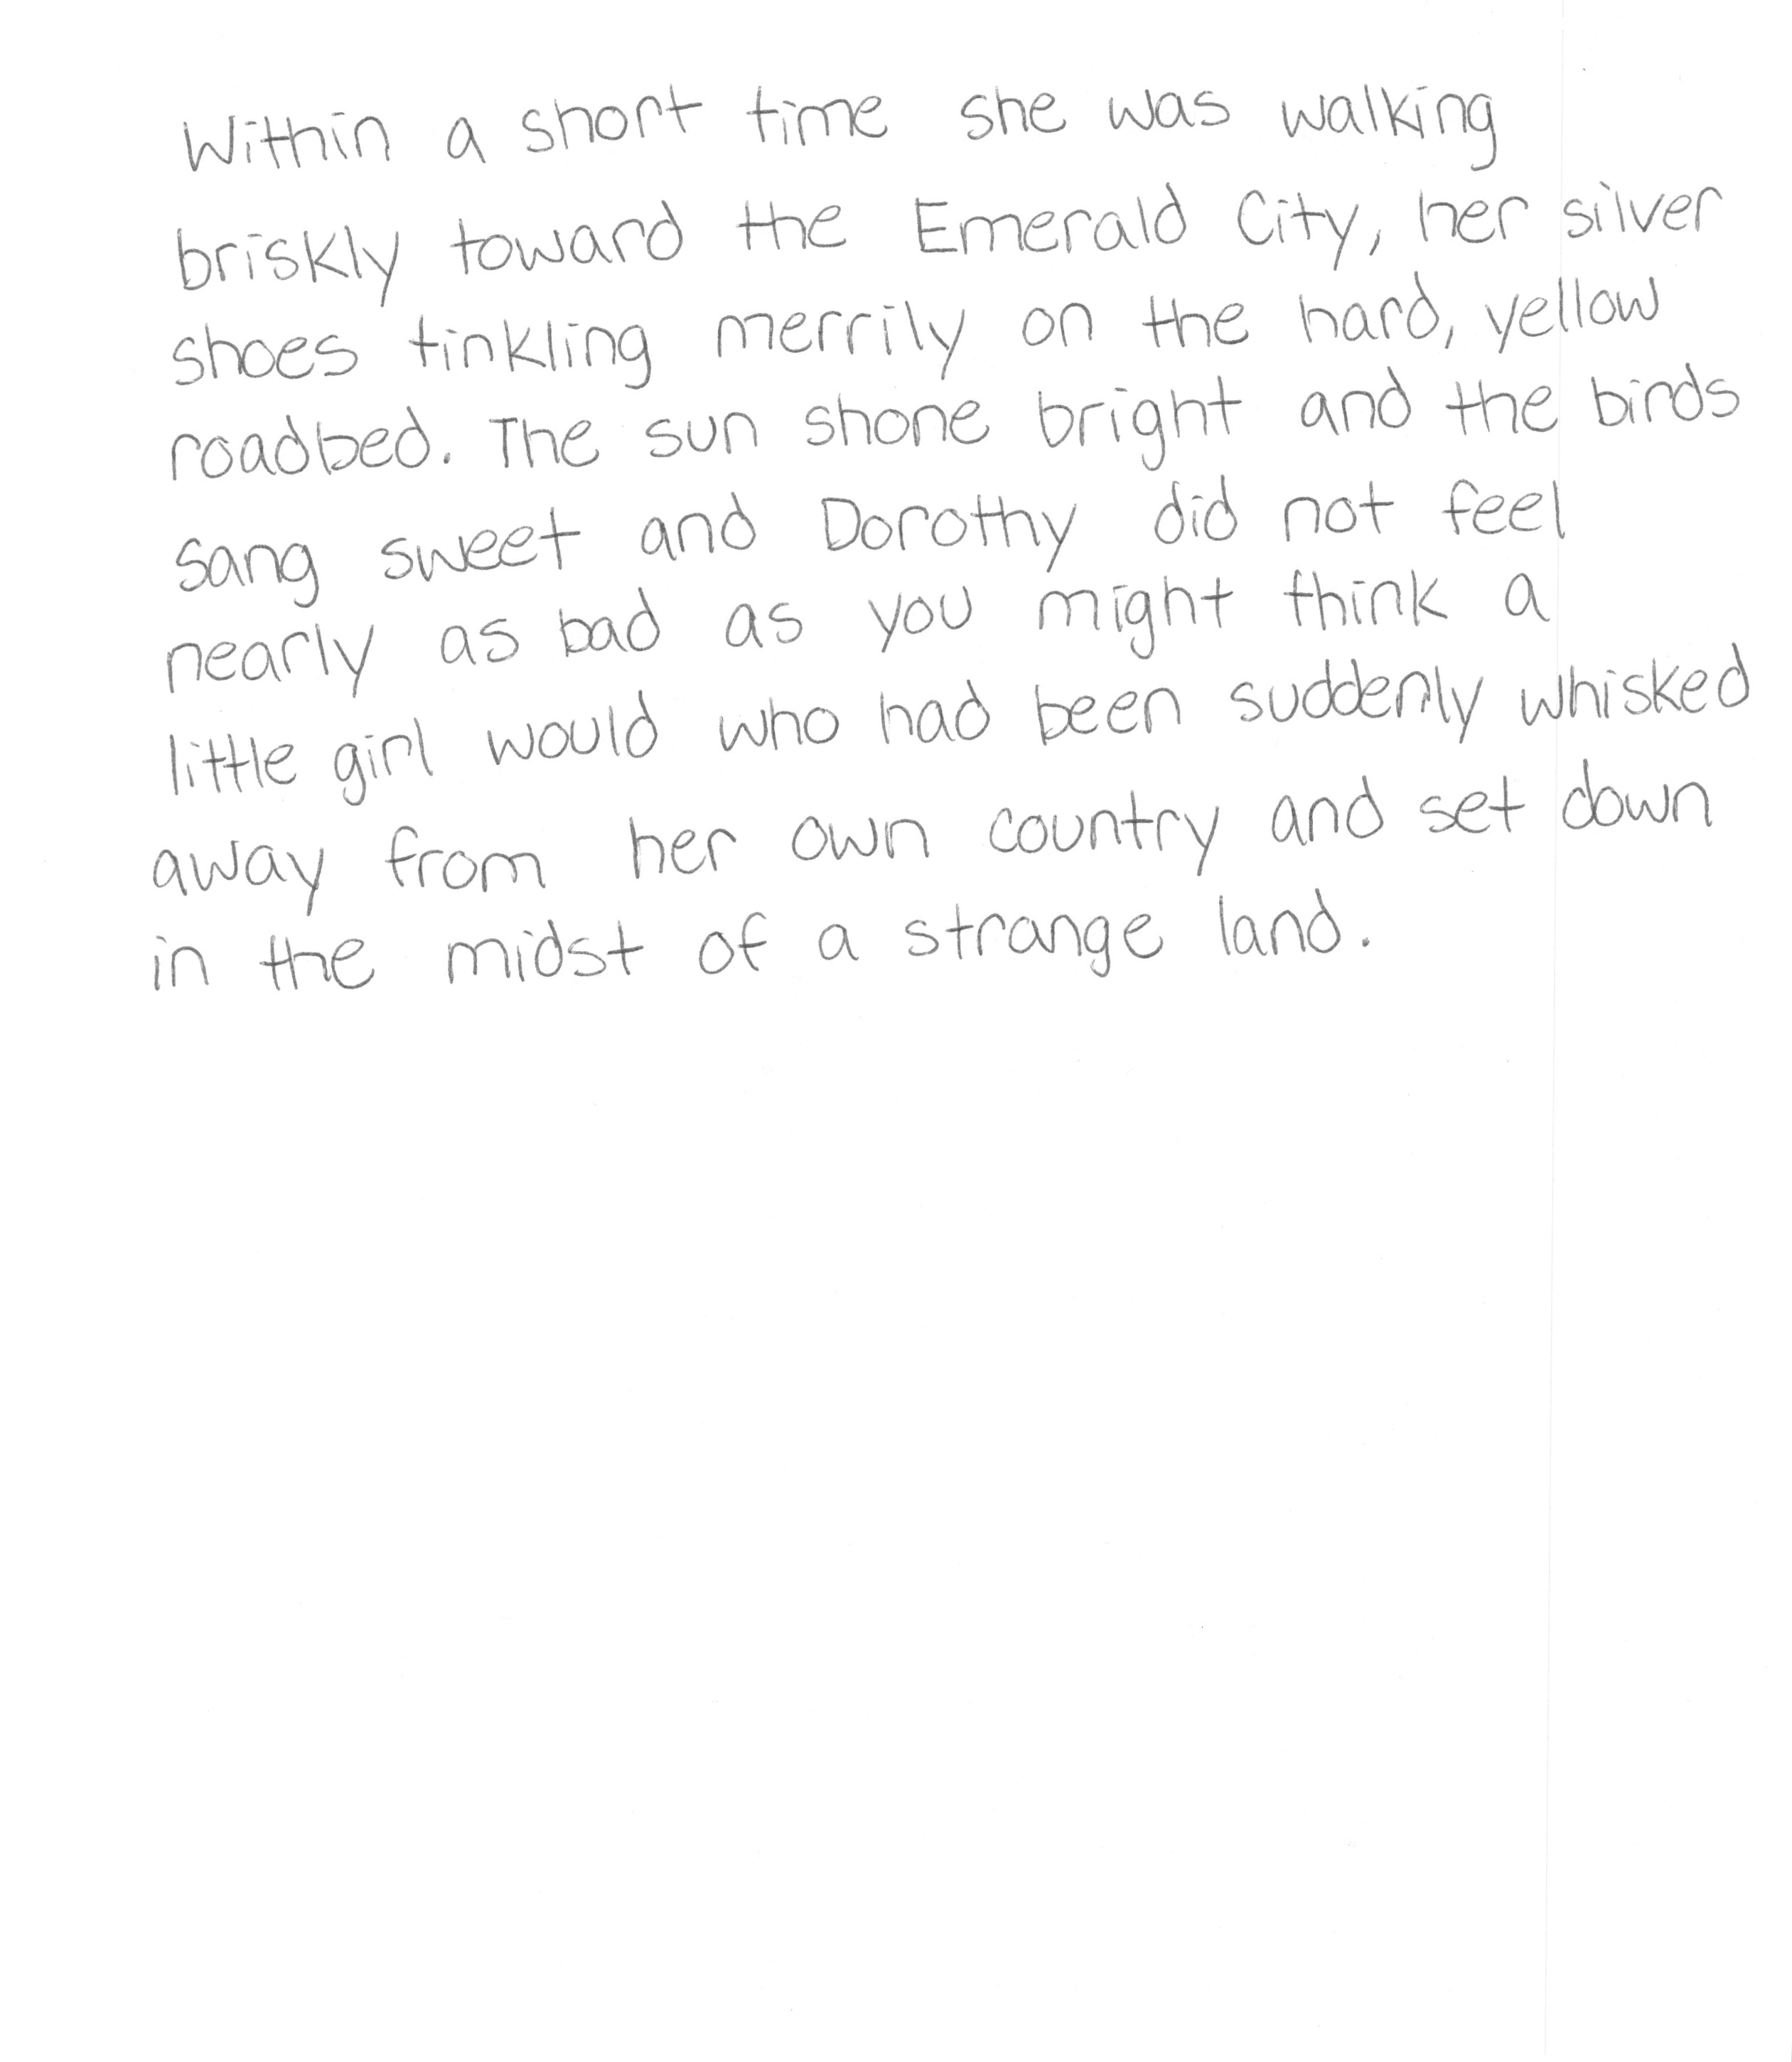 Within a short time she was walking
briskly toward the Emerald City, her silver
shoes tinkling merrily on the hard, yellow
roadbed. The sun shone bright and the birds
sang sweet and Dorothy did not feel
nearly as bad as you might think a
little girl would who had been suddenly whisked
away from her own country and set down
in the midst of a strange land.